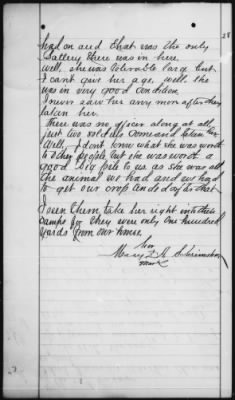 28
had on and that was the only
Sallery there was in here.
Well, she was tolerable large but
I cant give her age, well, she
was in very good condition
I never saw her any more after they
taken her.
There was no officer along at all
just two soldiers come and taken her
Well, I dont know what she was worth
to other people but she was worth a
good big pile to us, as she was all
the animal we had and we had
to get our crop and so after that
I seen them take her right into their
camps for they were only one hundred
yards from our house.
her
Mary X A.
mark